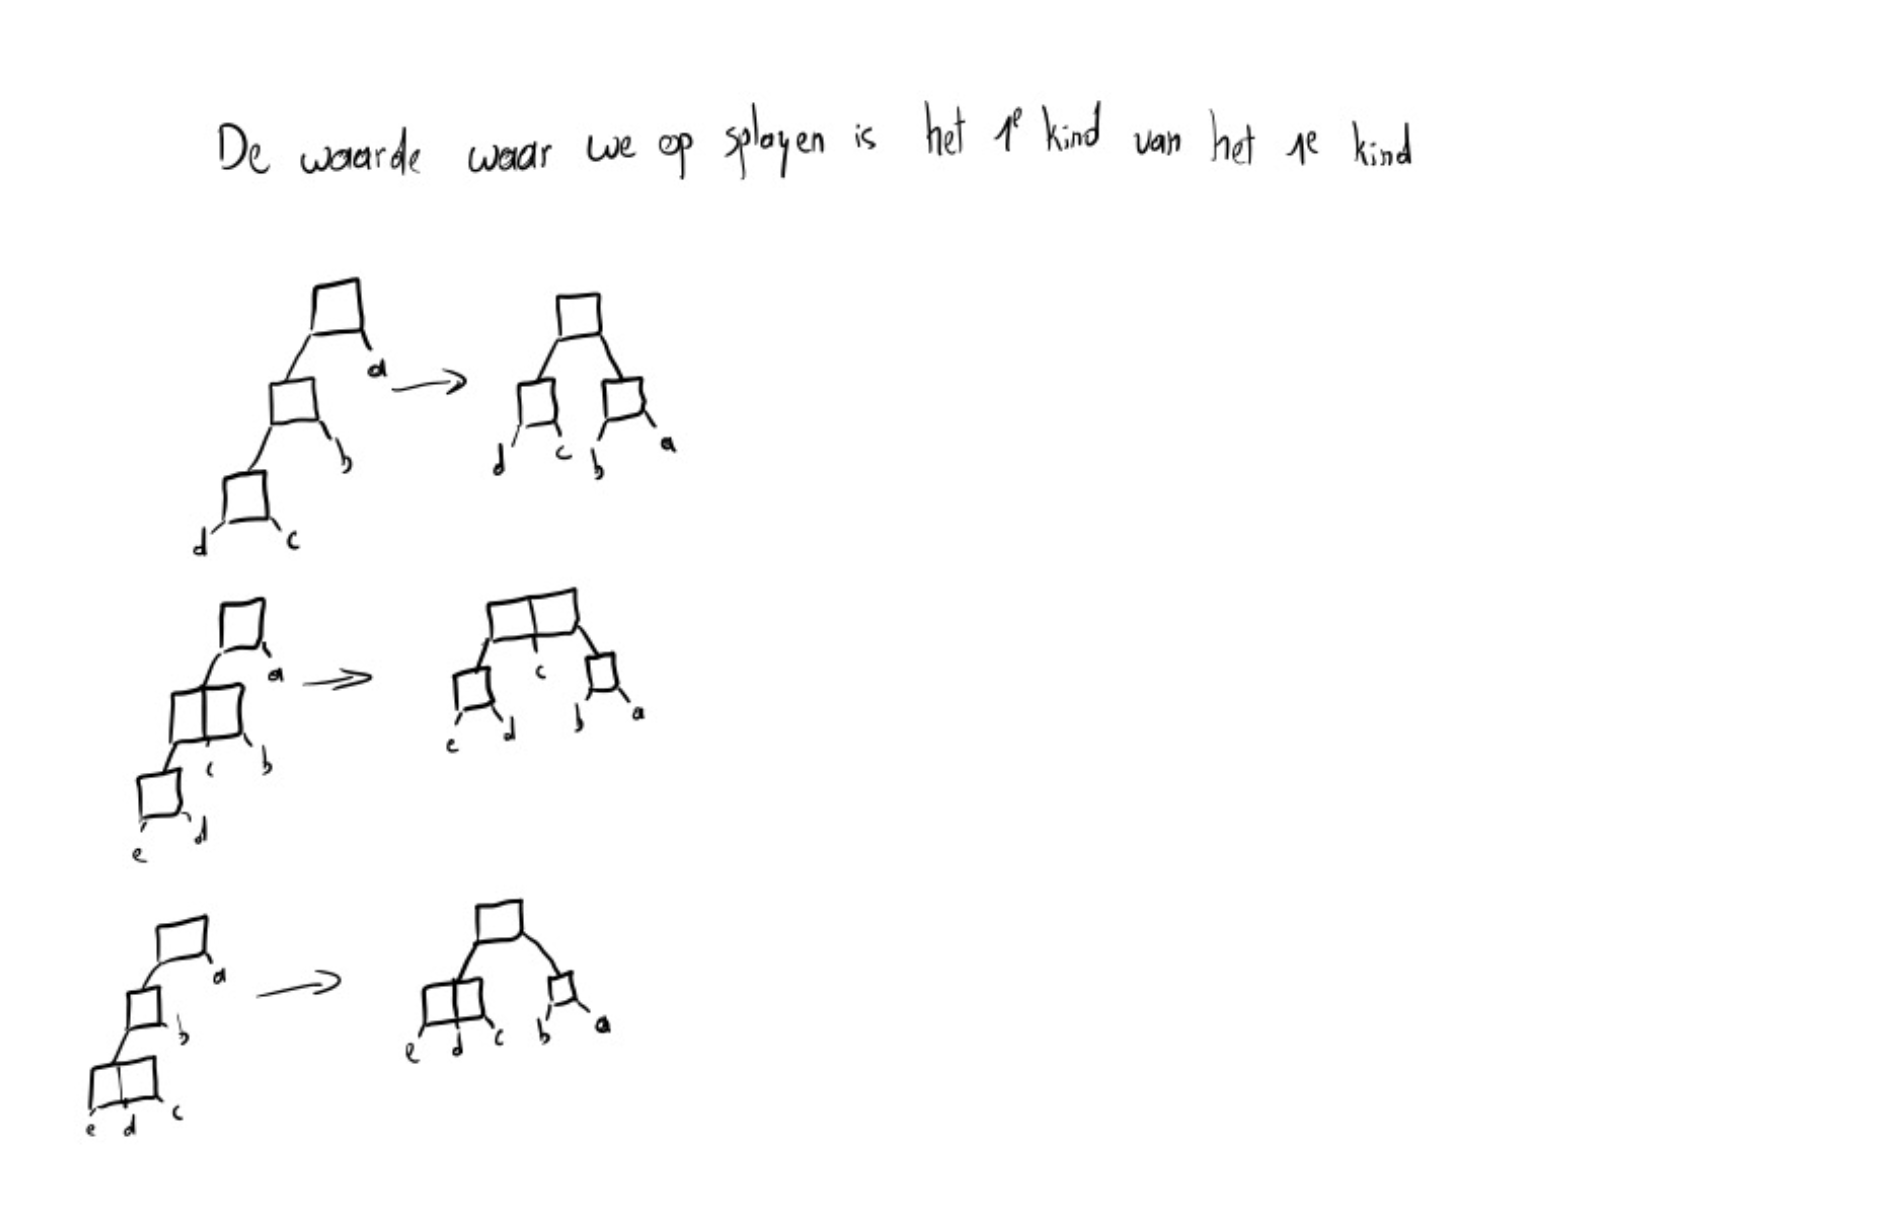 De waarde waar we op splayen is het 1e kind van het 1e kind
a
b
d c
d c b a
a
c b
e d
c
e d b a
a
b
e d c
e d c b a